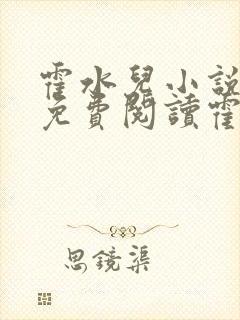 霍水兒小說
免費閱讀霍
思鏡渠